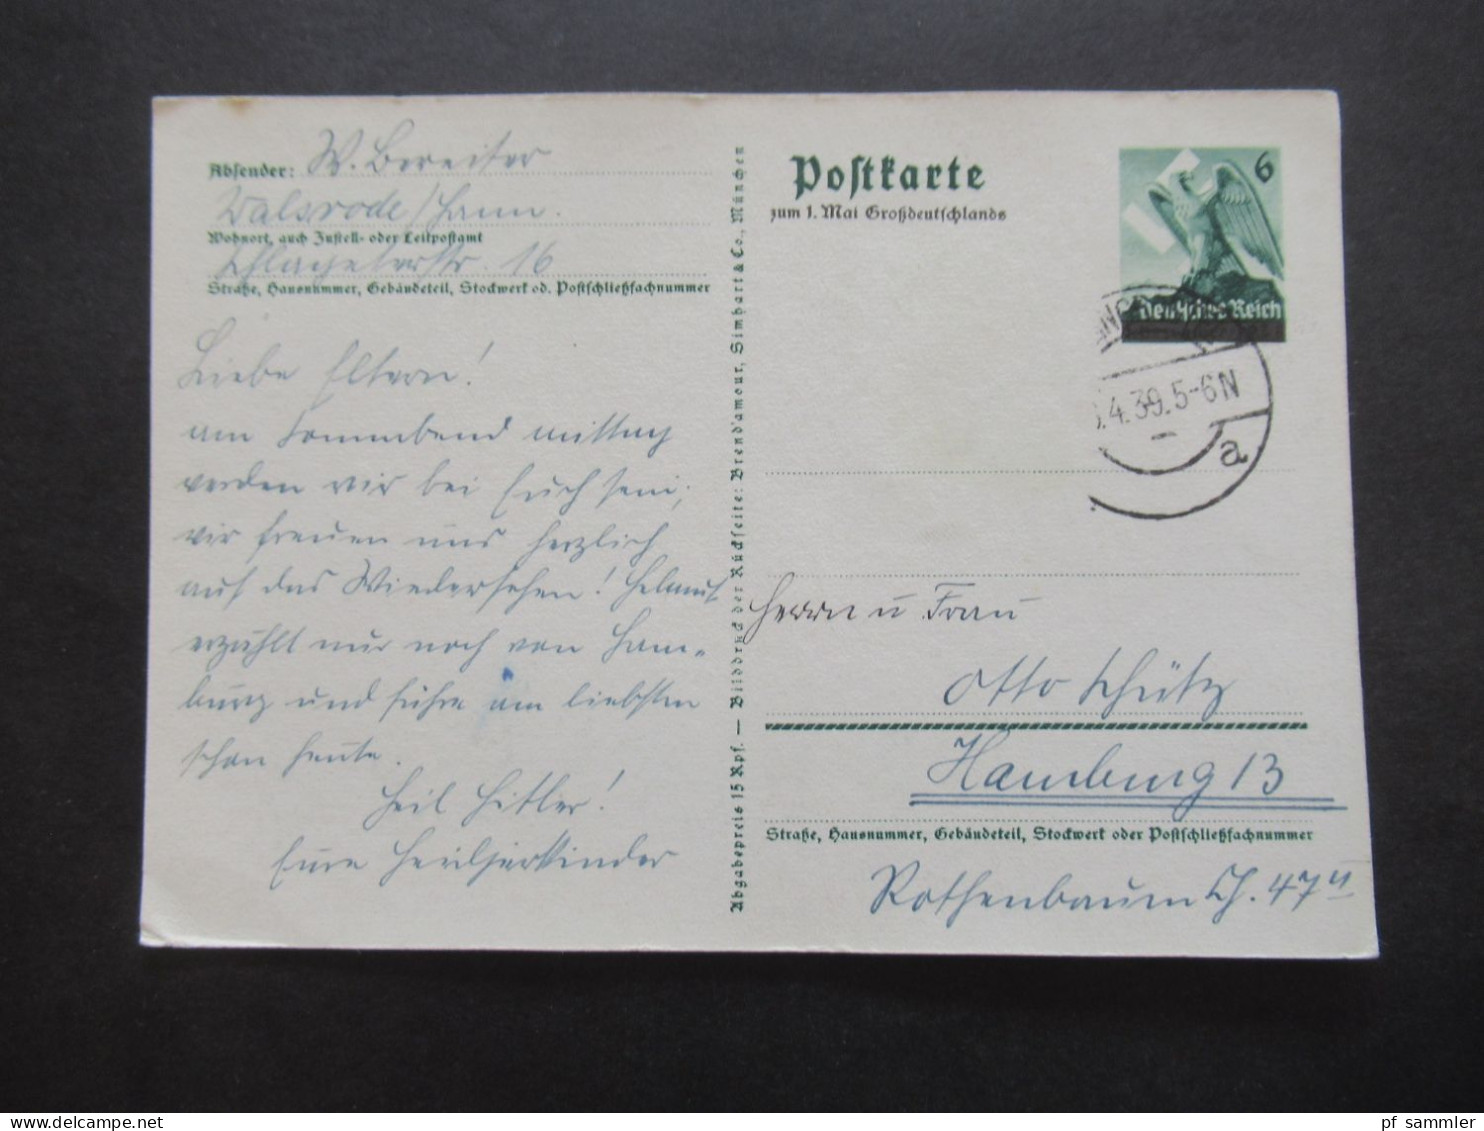 Absender: W. Bereiter
Walsrode/Hann.
Wohnort, auch Zustell- oder Leitpostamt
Schlageterstr. 16
Straße, Hausnummer, Gebäudeteil, Stockwerk od. Postschließfachnummer
Liebe Eltern!
am Sonnabend mittag
werden wir bei Euch sein;
wir freuen uns herzlich
auf das Wiedersehen! Helmut
erzählt nur noch von Ham-
burg und führe am liebsten
schon heute.
Heil Hitler!
Eure
Abgabepreis 15 Rpf. — Bilddruck der Rückseite: Brend'amour, Simhart & Co., München
Postkarte
zum 1. Mai Großdeutschlands
6
Deutsches Reich
4.39.5-6N
a
Herrn u Frau
Otto Schütz
Hamburg 13
Straße, Hausnummer, Gebäudeteil, Stockwerk oder Postschließfachnummer
Rothenbaum Ch. 47 II
delcampe.net
pf_sammler